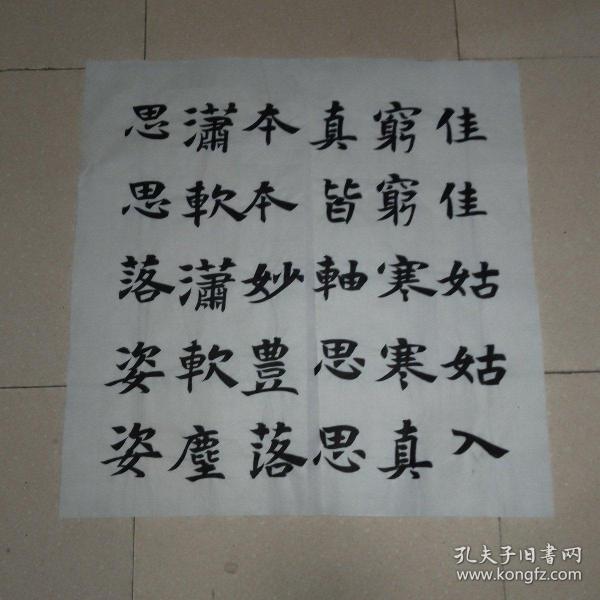 佳佳姑姑入
窮窮寒寒真
真皆軸思思
本本妙豊落
瀟軟瀟軟塵
思思落姿姿
孔夫子旧書网
www.kongfz.com